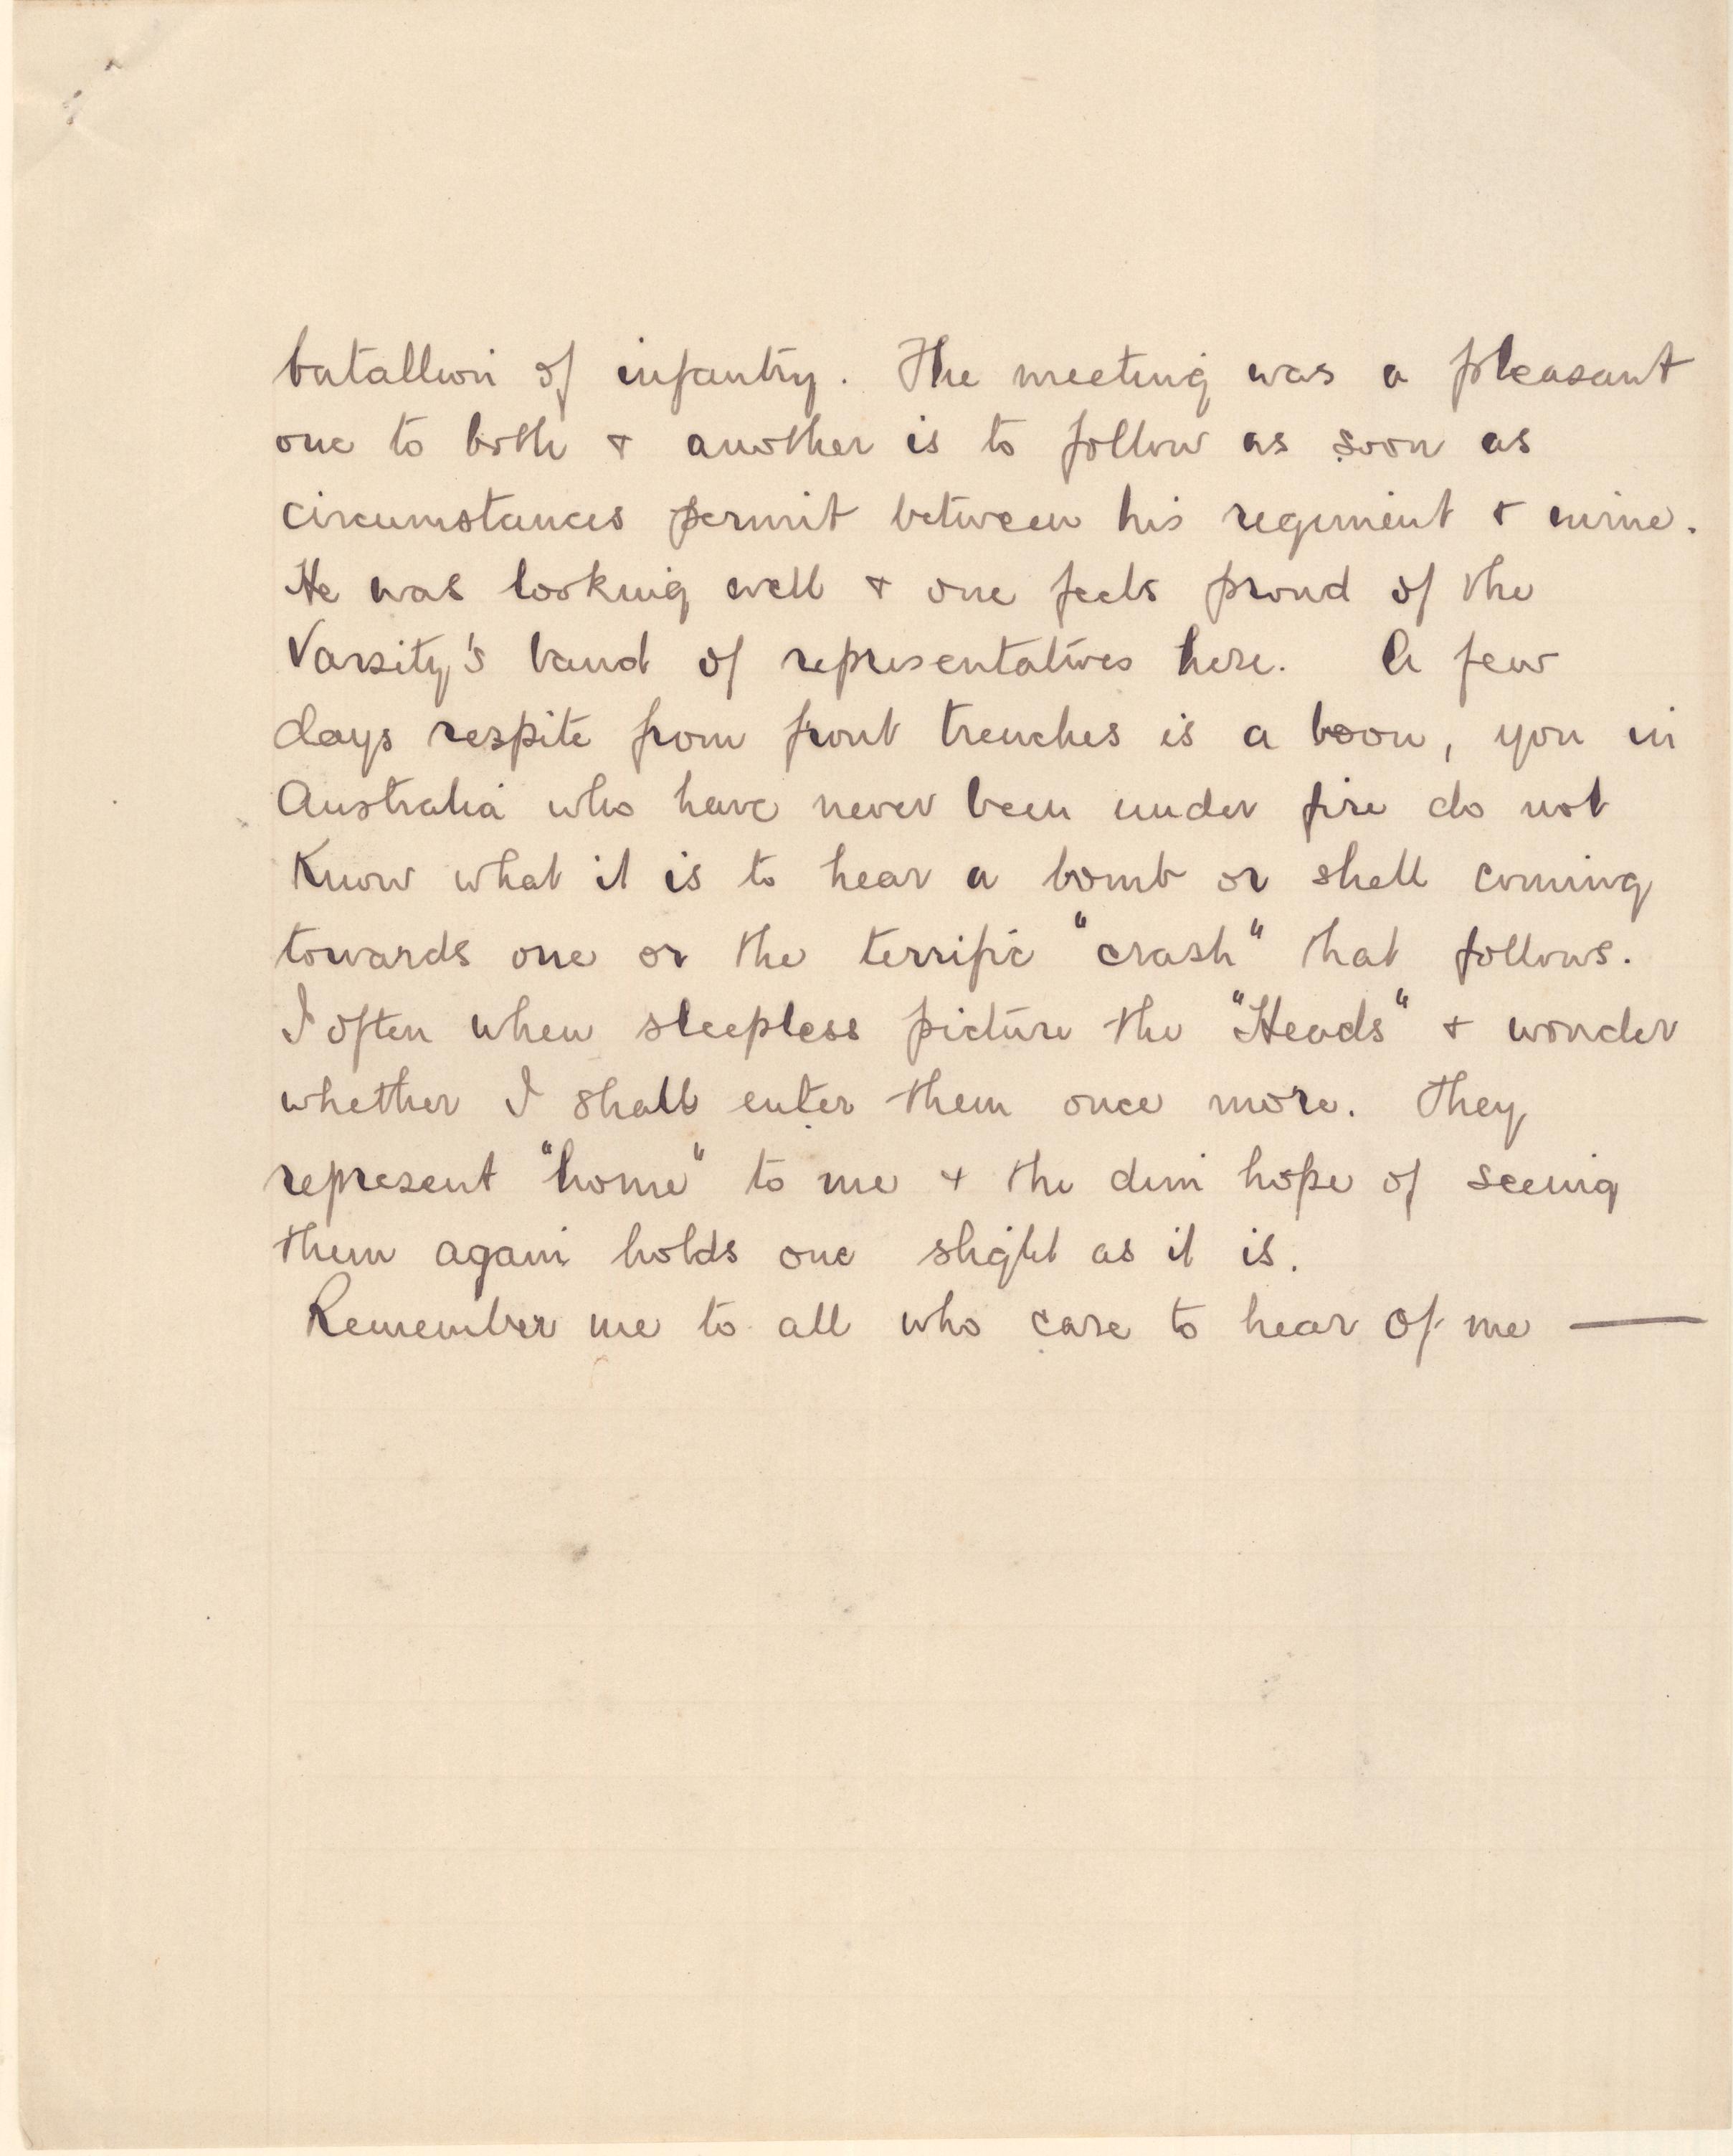 batallion of infantry. The meeting was a pleasant
one to both & another is to follow as soon as
circumstances permit between his regiment & mine.
He was looking well & one feels proud of the
Varsity's band of representatives here. A few
days respite from front trenches is a boon, you in
Australia who have never been under fire do not
know what it is to hear a bomb or shell coming
towards one or the terrific "crash" that follows.
I often when sleepless picture the "Heads" & wonder
whether I shall enter them once more. They
represent "home" to me & the dim hope of seeing
them again holds one slight as it is.
Remember me to all who care to hear of me —